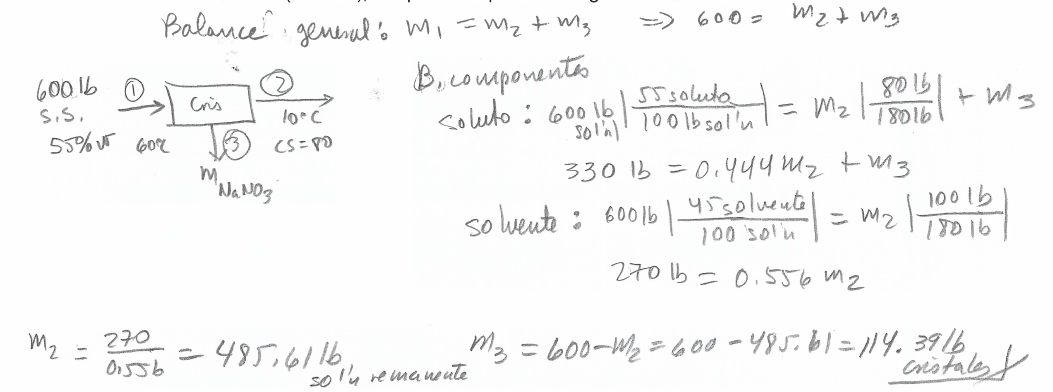 Balance general: m1 = m2 + m3 ⇒ 600 = m2 + m3
600 lb ① Cris ② 10°C
S.S. 55% w 60°C ③ CS=80
m NaNO3
B. componentes
soluto: 600 lb sol'n | 55 soluto / 100 lb sol'n | = m2 | 80 lb / 180 lb | + m3
330 lb = 0.444 m2 + m3
solvente: 600 lb | 45 solvente / 100 sol'n | = m2 | 100 lb / 180 lb |
270 lb = 0.556 m2
m2 = 270 / 0.556 = 485.61 lb sol'n remanente
m3 = 600 - m2 = 600 - 485.61 = 114.39 lb cristales